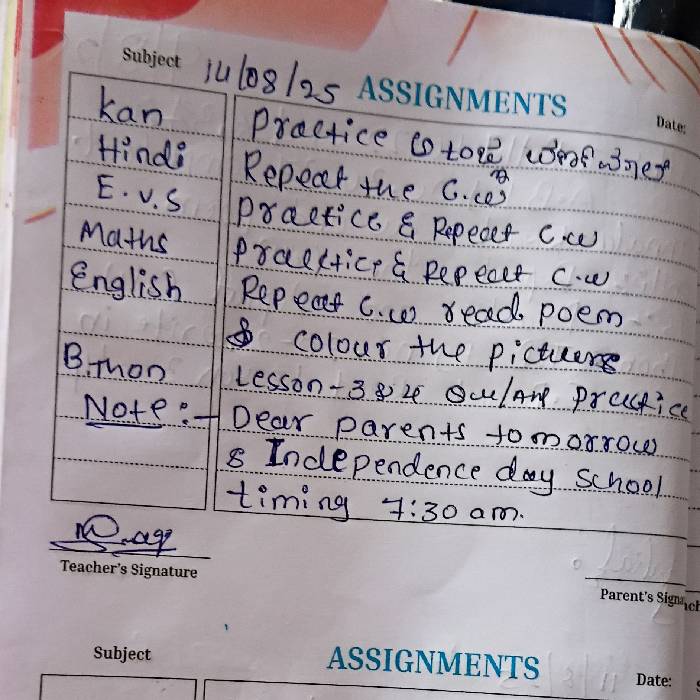 Subject 14/08/25 ASSIGNMENTS Date:
Kan Practice
Hindi Repeat the C.w
E.V.S Practice & Repeat C.w
Maths Practice & Repeat C.w
English Repeat C.w read poem
& colour the pictures
B.thon Lesson-3 & 4 Que/Ans Practice
Note:- Dear parents tomorrow
s Independence day school
timing 7:30 am.
Teacher's Signature
Parent's Signa
Subject ASSIGNMENTS Date: